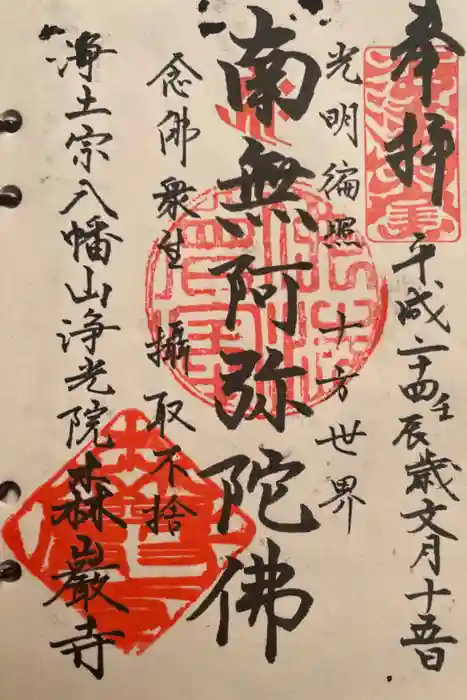 奉拝
平成二十四壬辰歳文月十五日
光明徧照 十方世界
南無阿弥陀佛
念佛衆生 攝取不捨
浄土宗八幡山浄光院森巖寺